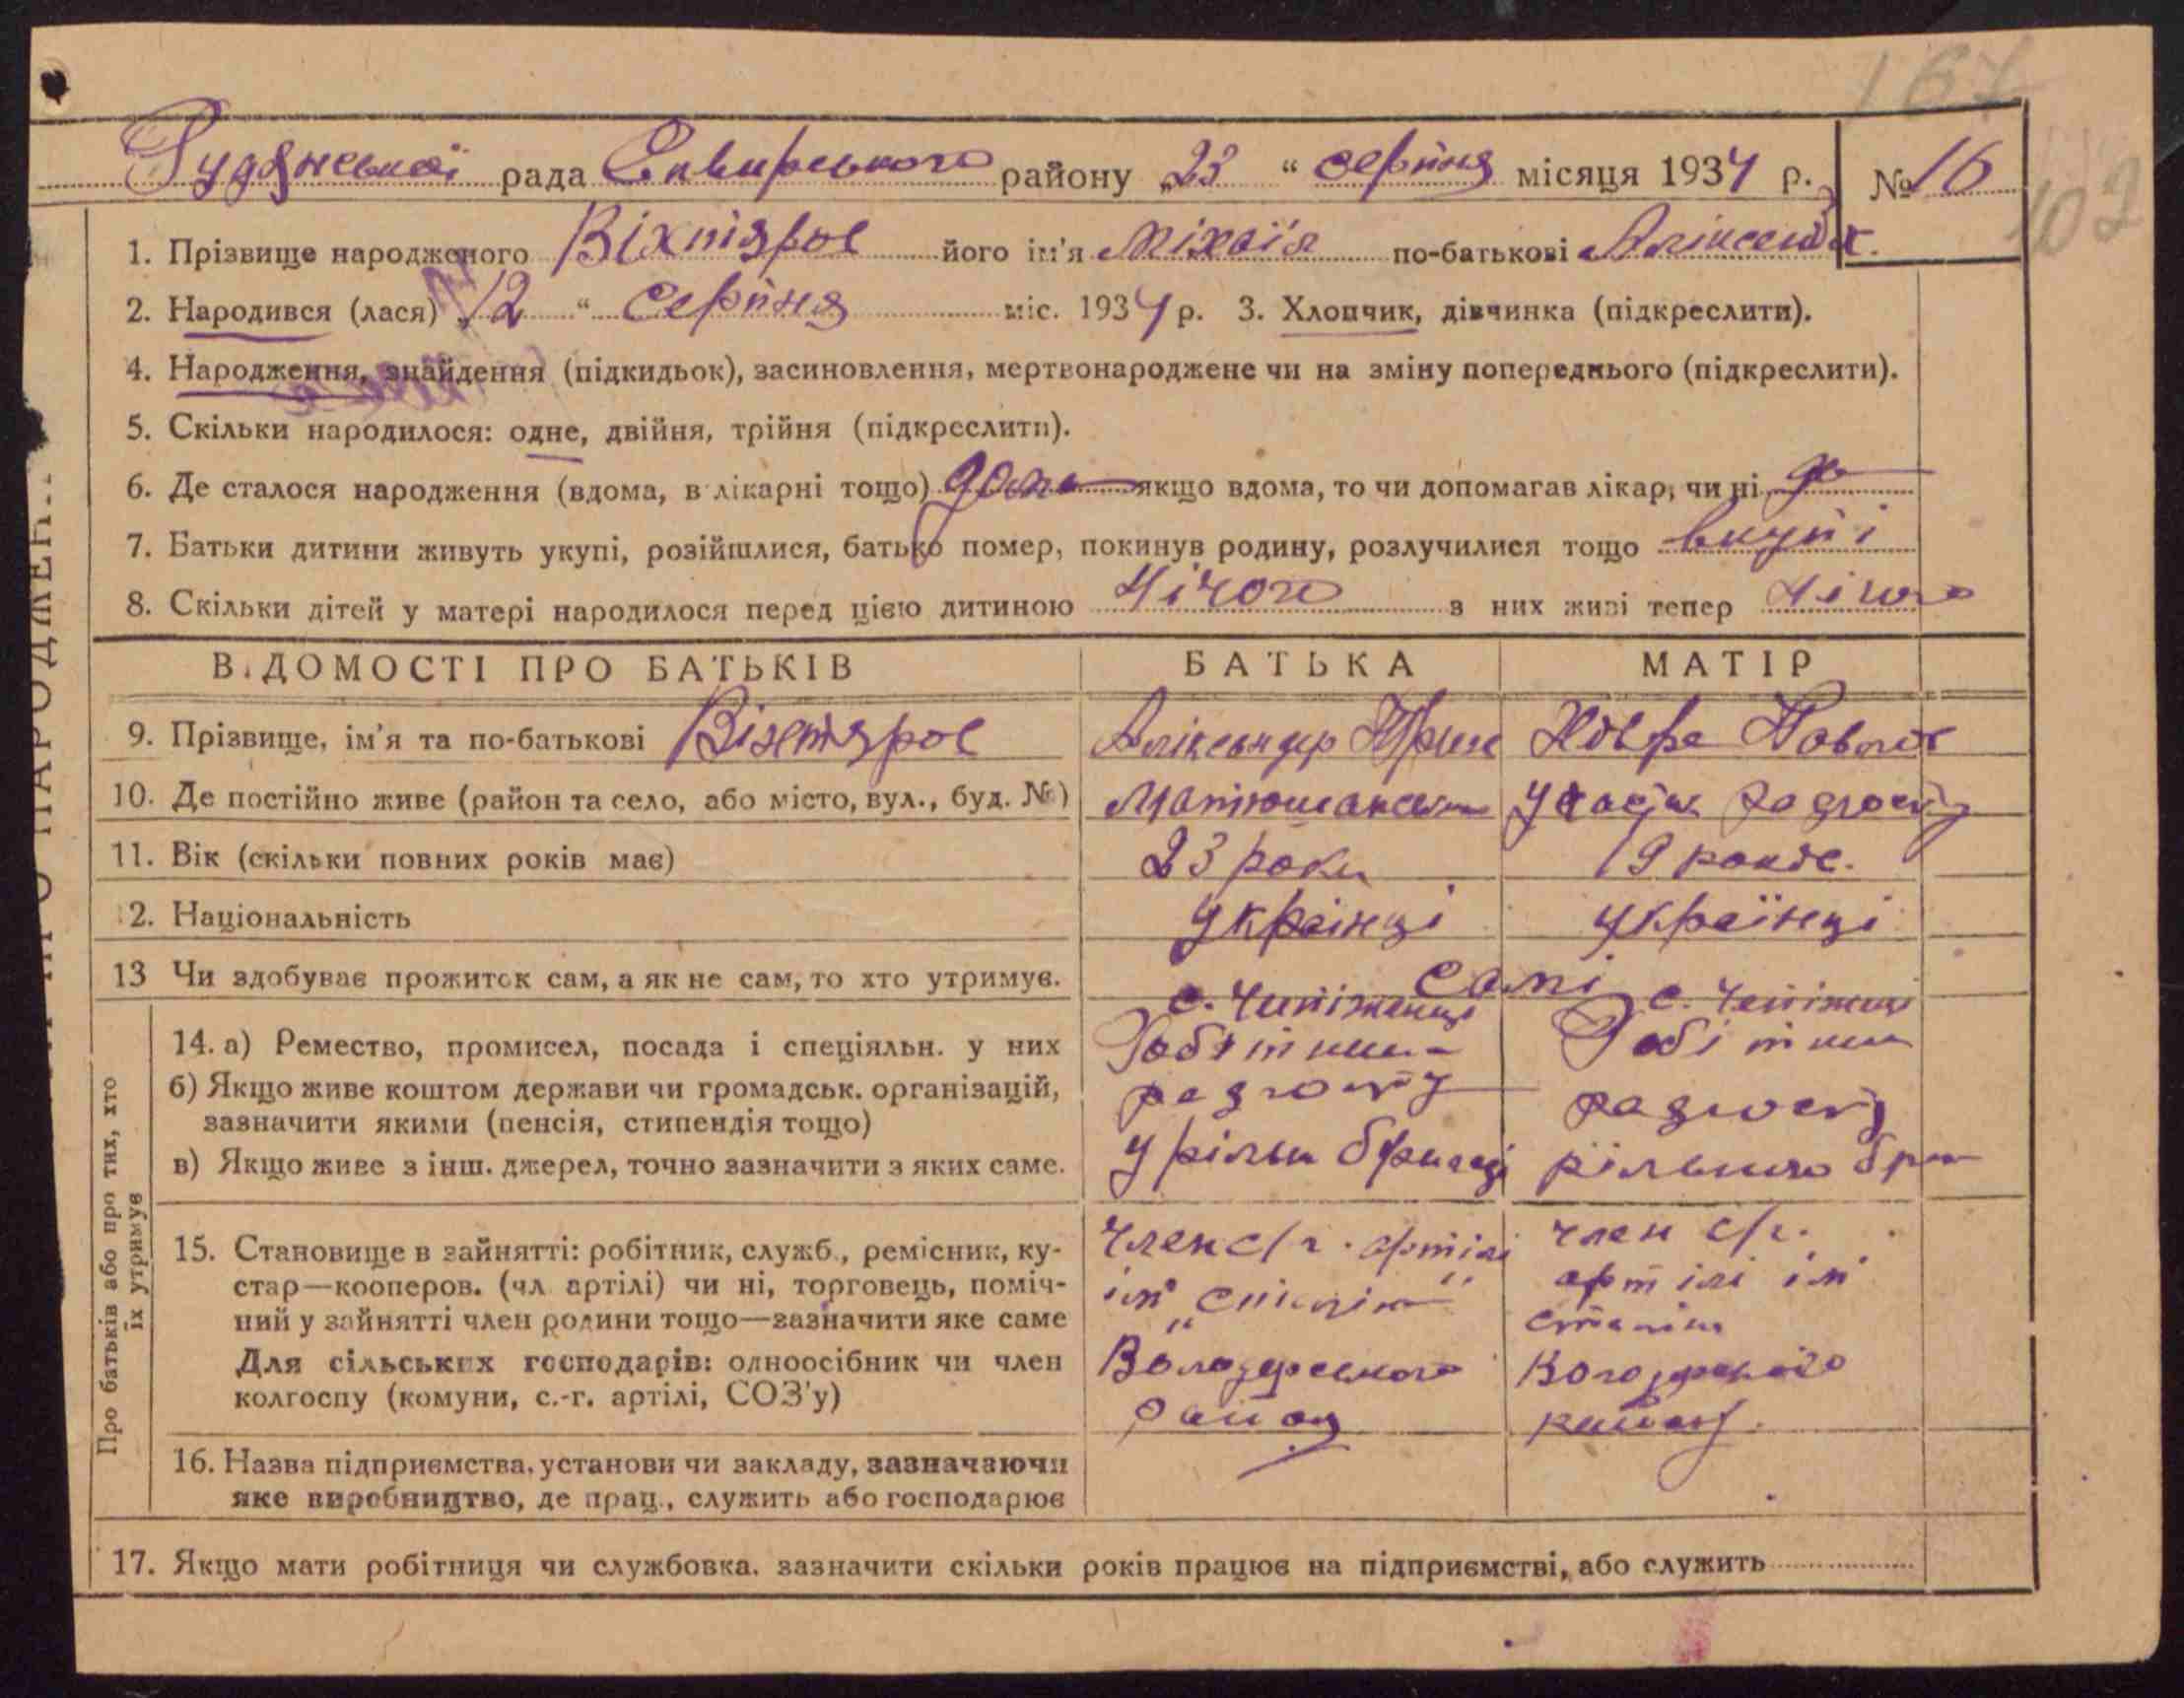 167
Руданської рада Сквирського району „23“ серпня місяця 1934 р. № 16
102
1. Прізвище народженого його ім'я Міхаїл по-батькові
2. Народився (лася) „12“ серпня міс. 1934 р. 3. Хлопчик, дівчинка (підкреслити).
4. Народження, знайдення (підкидьок), засиновлення, мертвонароджене чи на зміну попереднього (підкреслити).
5. Скільки народилося: одне, двійня, трійня (підкреслити).
6. Де сталося народження (вдома, в лікарні тощо) дома якщо вдома, то чи допомагав лікар, чи ні
7. Батьки дитини живуть укупі, розійшлися, батько помер, покинув родину, розлучилися тощо вкупі
8. Скільки дітей у матері народилося перед цією дитиною нічого з них живі тепер нічого
ВІДОМОСТІ ПРО БАТЬКІВ БАТЬКА МАТІР
9. Прізвище, ім'я та по-батькові
10. Де постійно живе (район та село, або місто, вул., буд. №) радгоспу
11. Вік (скільки повних років має) 23 роки 19 років.
12. Національність українці українці
13 Чи здобуває прожиток сам, а як не сам, то хто утримує. самі
с. с.
14. а) Ремество, промисел, посада і спеціяльн. у них
б) Якщо живе коштом держави чи громадськ. організацій, радгоспу радгоспу
зазначити якими (пенсія, стипендія тощо)
в) Якщо живе з інш. джерел, точно зазначити з яких саме. у рільн бригаді рільничо бри
Про батьків або про тих, хто їх утримує
15. Становище в зайнятті: робітник, служб., ремісник, ку- член с/г. артілі член с/г.
стар—кооперов. (чл. артілі) чи ні, торговець, поміч- ім артілі ім
ний у зайнятті член родини тощо—зазначити яке саме Сталіна
Для сільських господарів: одноосібник чи член Володарського Володарського
колгоспу (комуни, с.-г. артілі, СОЗ'у) району району.
16. Назва підприємства, установи чи закладу, зазначаючи
яке виробництво, де прац., служить або господарює
17. Якщо мати робітниця чи службовка, зазначити скільки років працює на підприємстві, або служить